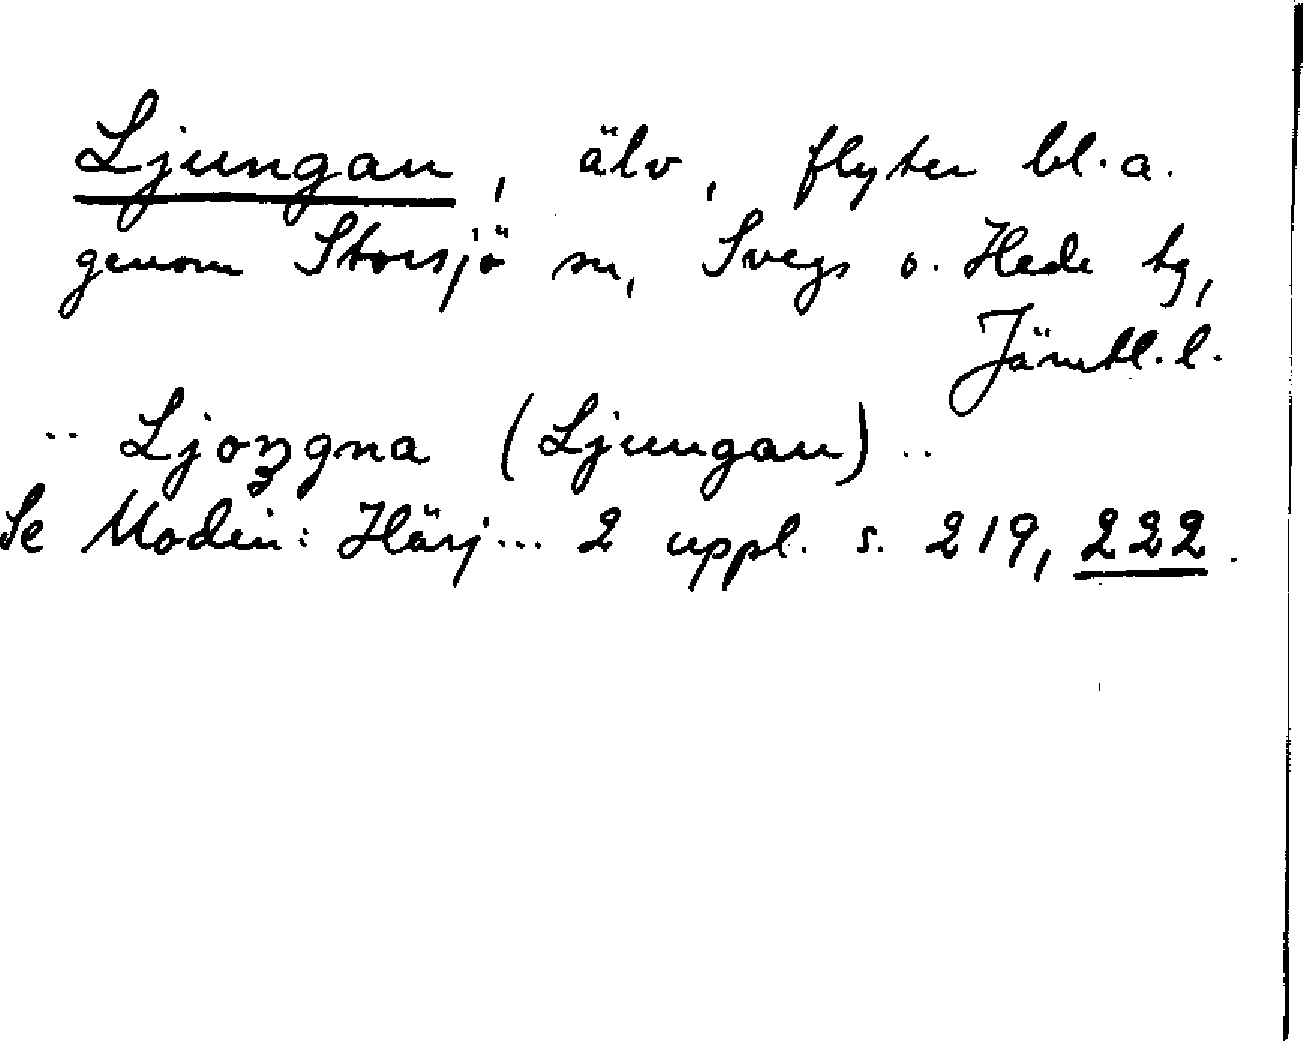 Ljungan, älv, flyter bl.a.
genom Storsjö sn, Svegs o. Hede tg,
Jämtl. l.
.. Ljoŋgna (Ljungan) ..
Se Modin: Härj... 2 uppl. s. 219, 222.